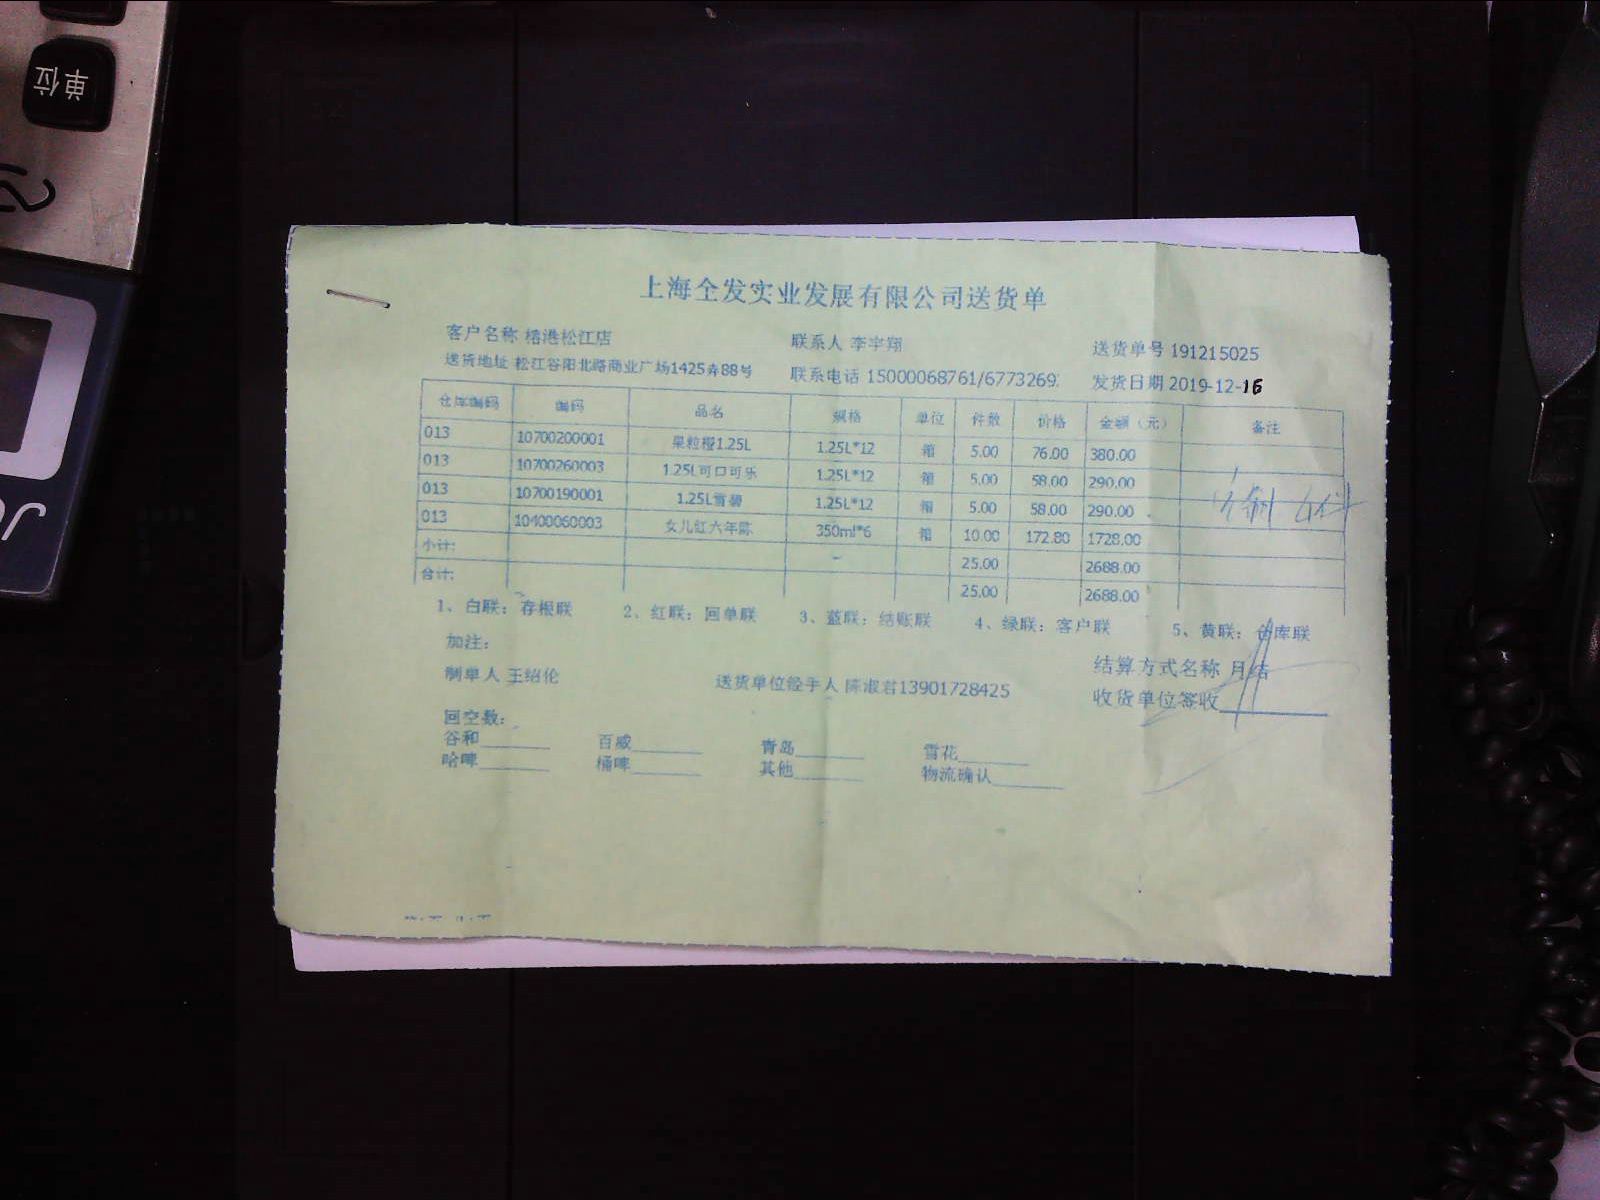 单位
上海全发实业发展有限公司送货单
客户名称 椿港松江店 联系人 李宇翔 送货单号 191215025
送货地址 松江谷阳北路商业广场1425弄88号 联系电话 15000068761/6773269 发货日期 2019-12-16
仓库编码 编码 品名 规格 单位 件数 价格 金额（元） 备注
013 10700200001 果粒橙1.25L 1.25L*12 箱 5.00 76.00 380.00
013 10700260003 1.25L可口可乐 1.25L*12 箱 5.00 58.00 290.00
013 10700190001 1.25L雪碧 1.25L*12 箱 5.00 58.00 290.00
013 10400060003 女儿红六年陈 350ml*6 箱 10.00 172.80 1728.00
小计: 25.00 2688.00
合计: 25.00 2688.00
1、白联：存根联 2、红联：回单联 3、蓝联：结账联 4、绿联：客户联 5、黄联：仓库联
加注：
制单人 王绍伦 送货单位经手人 陈淑君13901728425 结算方式名称 月结
收货单位签收
回空数：
谷和 百威 青岛 雪花
哈啤 桶啤 其他 物流确认